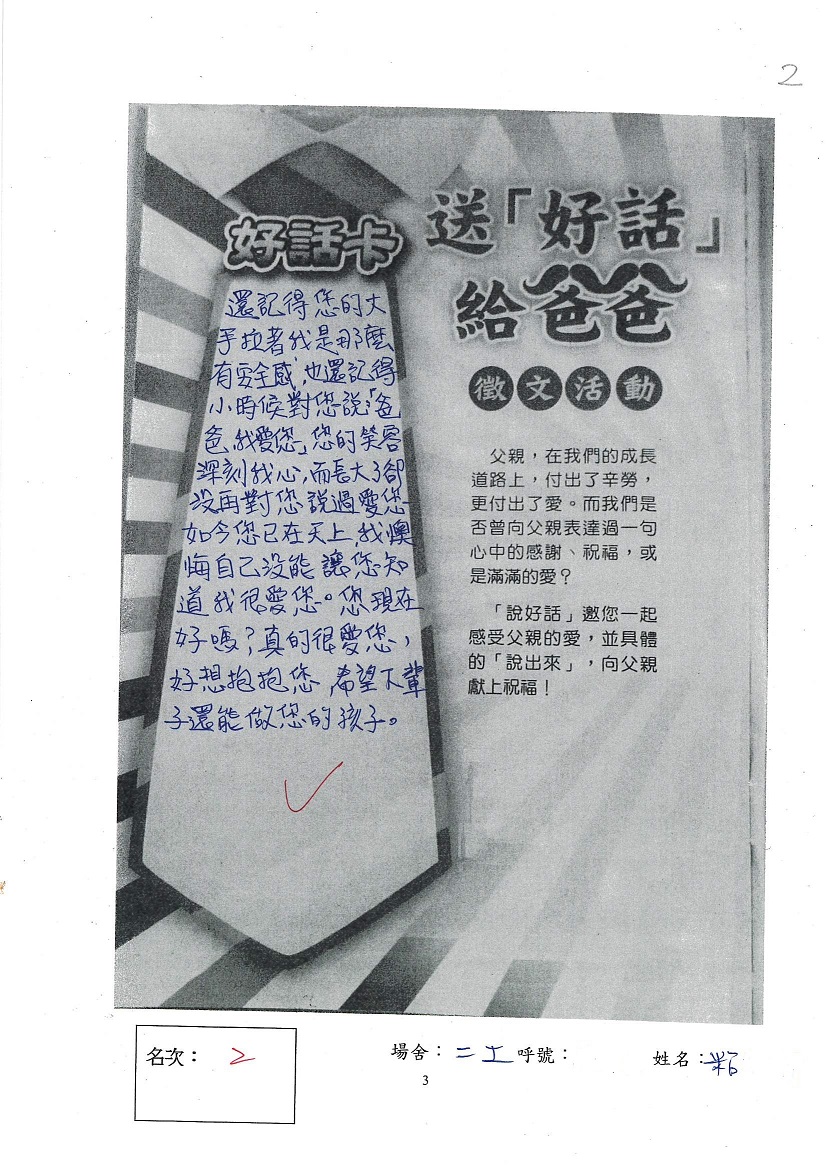 2
好話卡
還記得您的大
手拉著我是那麼
有安全感,也還記得
小時候對您說「爸
爸,我愛您」您的笑容
深刻我心,而長大了卻
沒再對您說過愛您
如今您已在天上,我懊
悔自己沒能讓您知
道我很愛您。您現在
好嗎?真的很愛您,
好想抱抱您,希望下輩
子還能做您的孩子。
送「好話」
給爸爸
徵文活動
父親,在我們的成長
道路上,付出了辛勞,
更付出了愛。而我們是
否曾向父親表達過一句
心中的感謝、祝福,或
是滿滿的愛?
「說好話」邀您一起
感受父親的愛,並具體
的「說出來」,向父親
獻上祝福!
名次: 2
場舍:二工 呼號:
姓名:
3